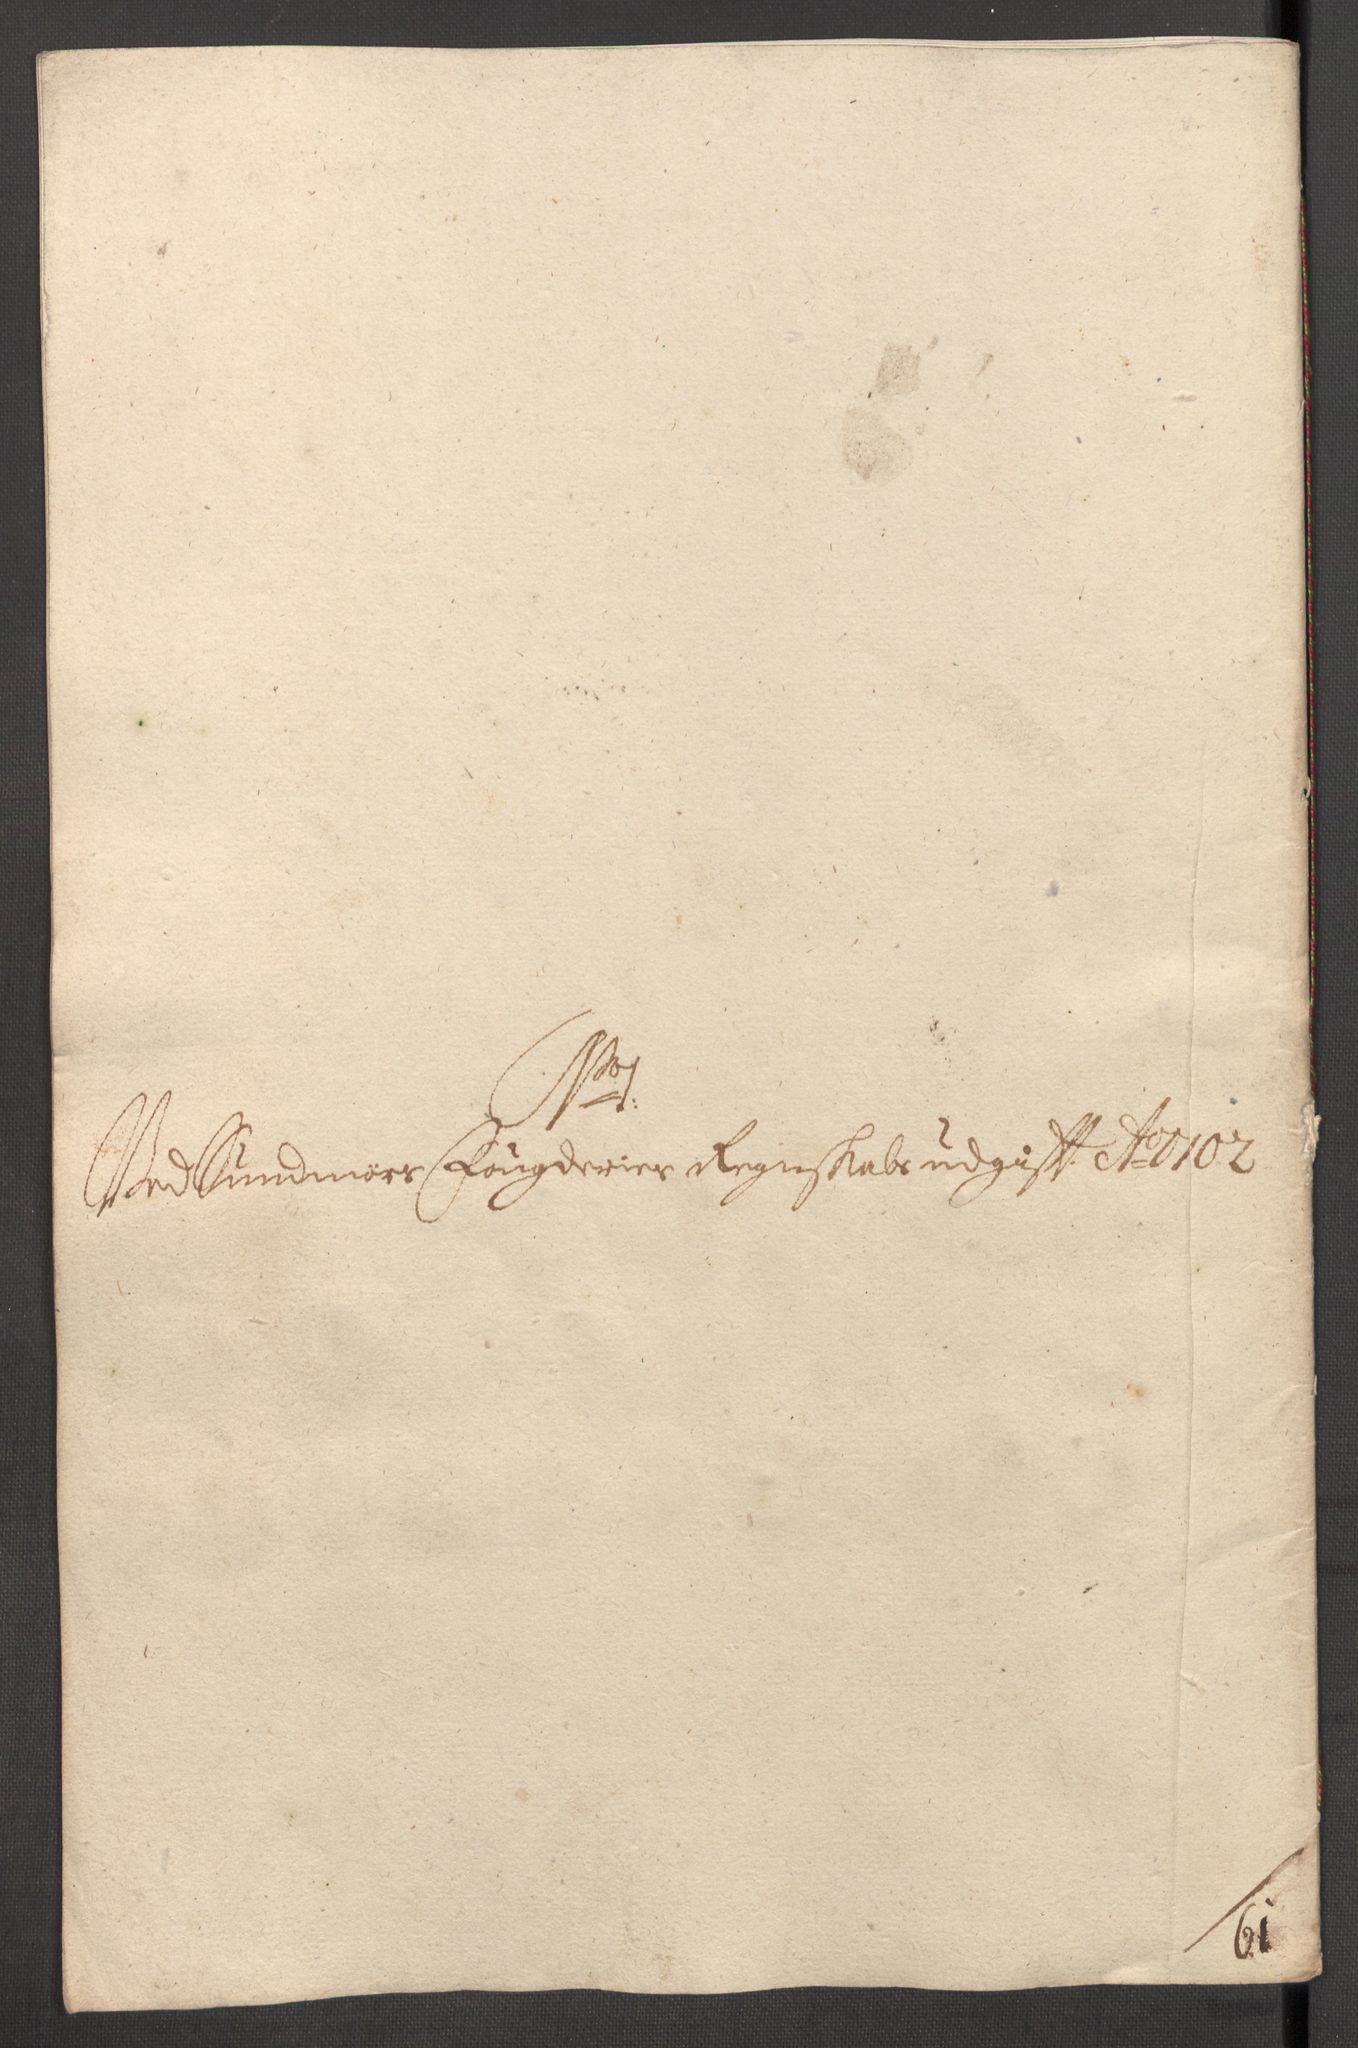 No 1:
Ved Sundmørs Fougderies Regnskabs udgift Ao 1702
61